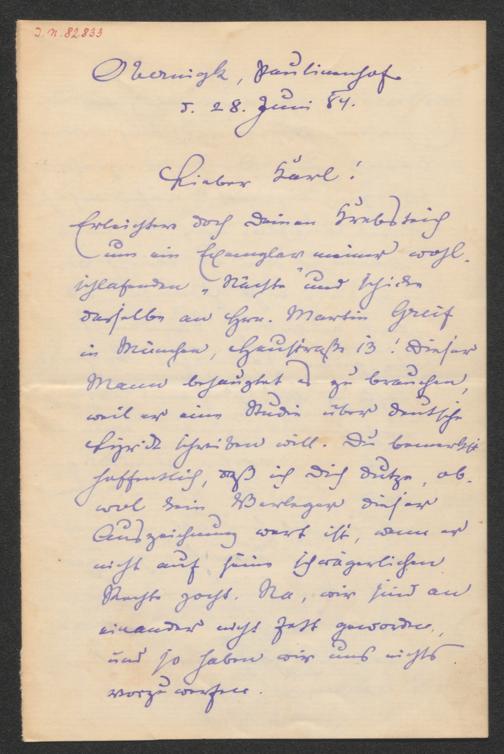 I.N. 82833
Obernigk, Paulinenhof
d. 28. Juni 84.
Lieber Karl!
Erleichtere doch Deinen Krebsteich
um ein Exemplar meiner wohl-
schlafenden „Nächte“ und schicke
dasselbe an Hrn. Martin Greif
in München, Heustraße 13! Dieser
Mann behauptet es zu brauchen,
weil er eine Studie über deutsche
Lyrik schreiben will. Du bemerkst
hoffentlich, daß ich Dich dutze, ob-
wol kein Verleger dieser
Auszeichnung wert ist, wenn er
nicht auf seine schwägerlichen
Rechte pocht. Na, wir sind an
einander nicht fett geworden,
und so haben wir uns nichts
vorzuwerfen.